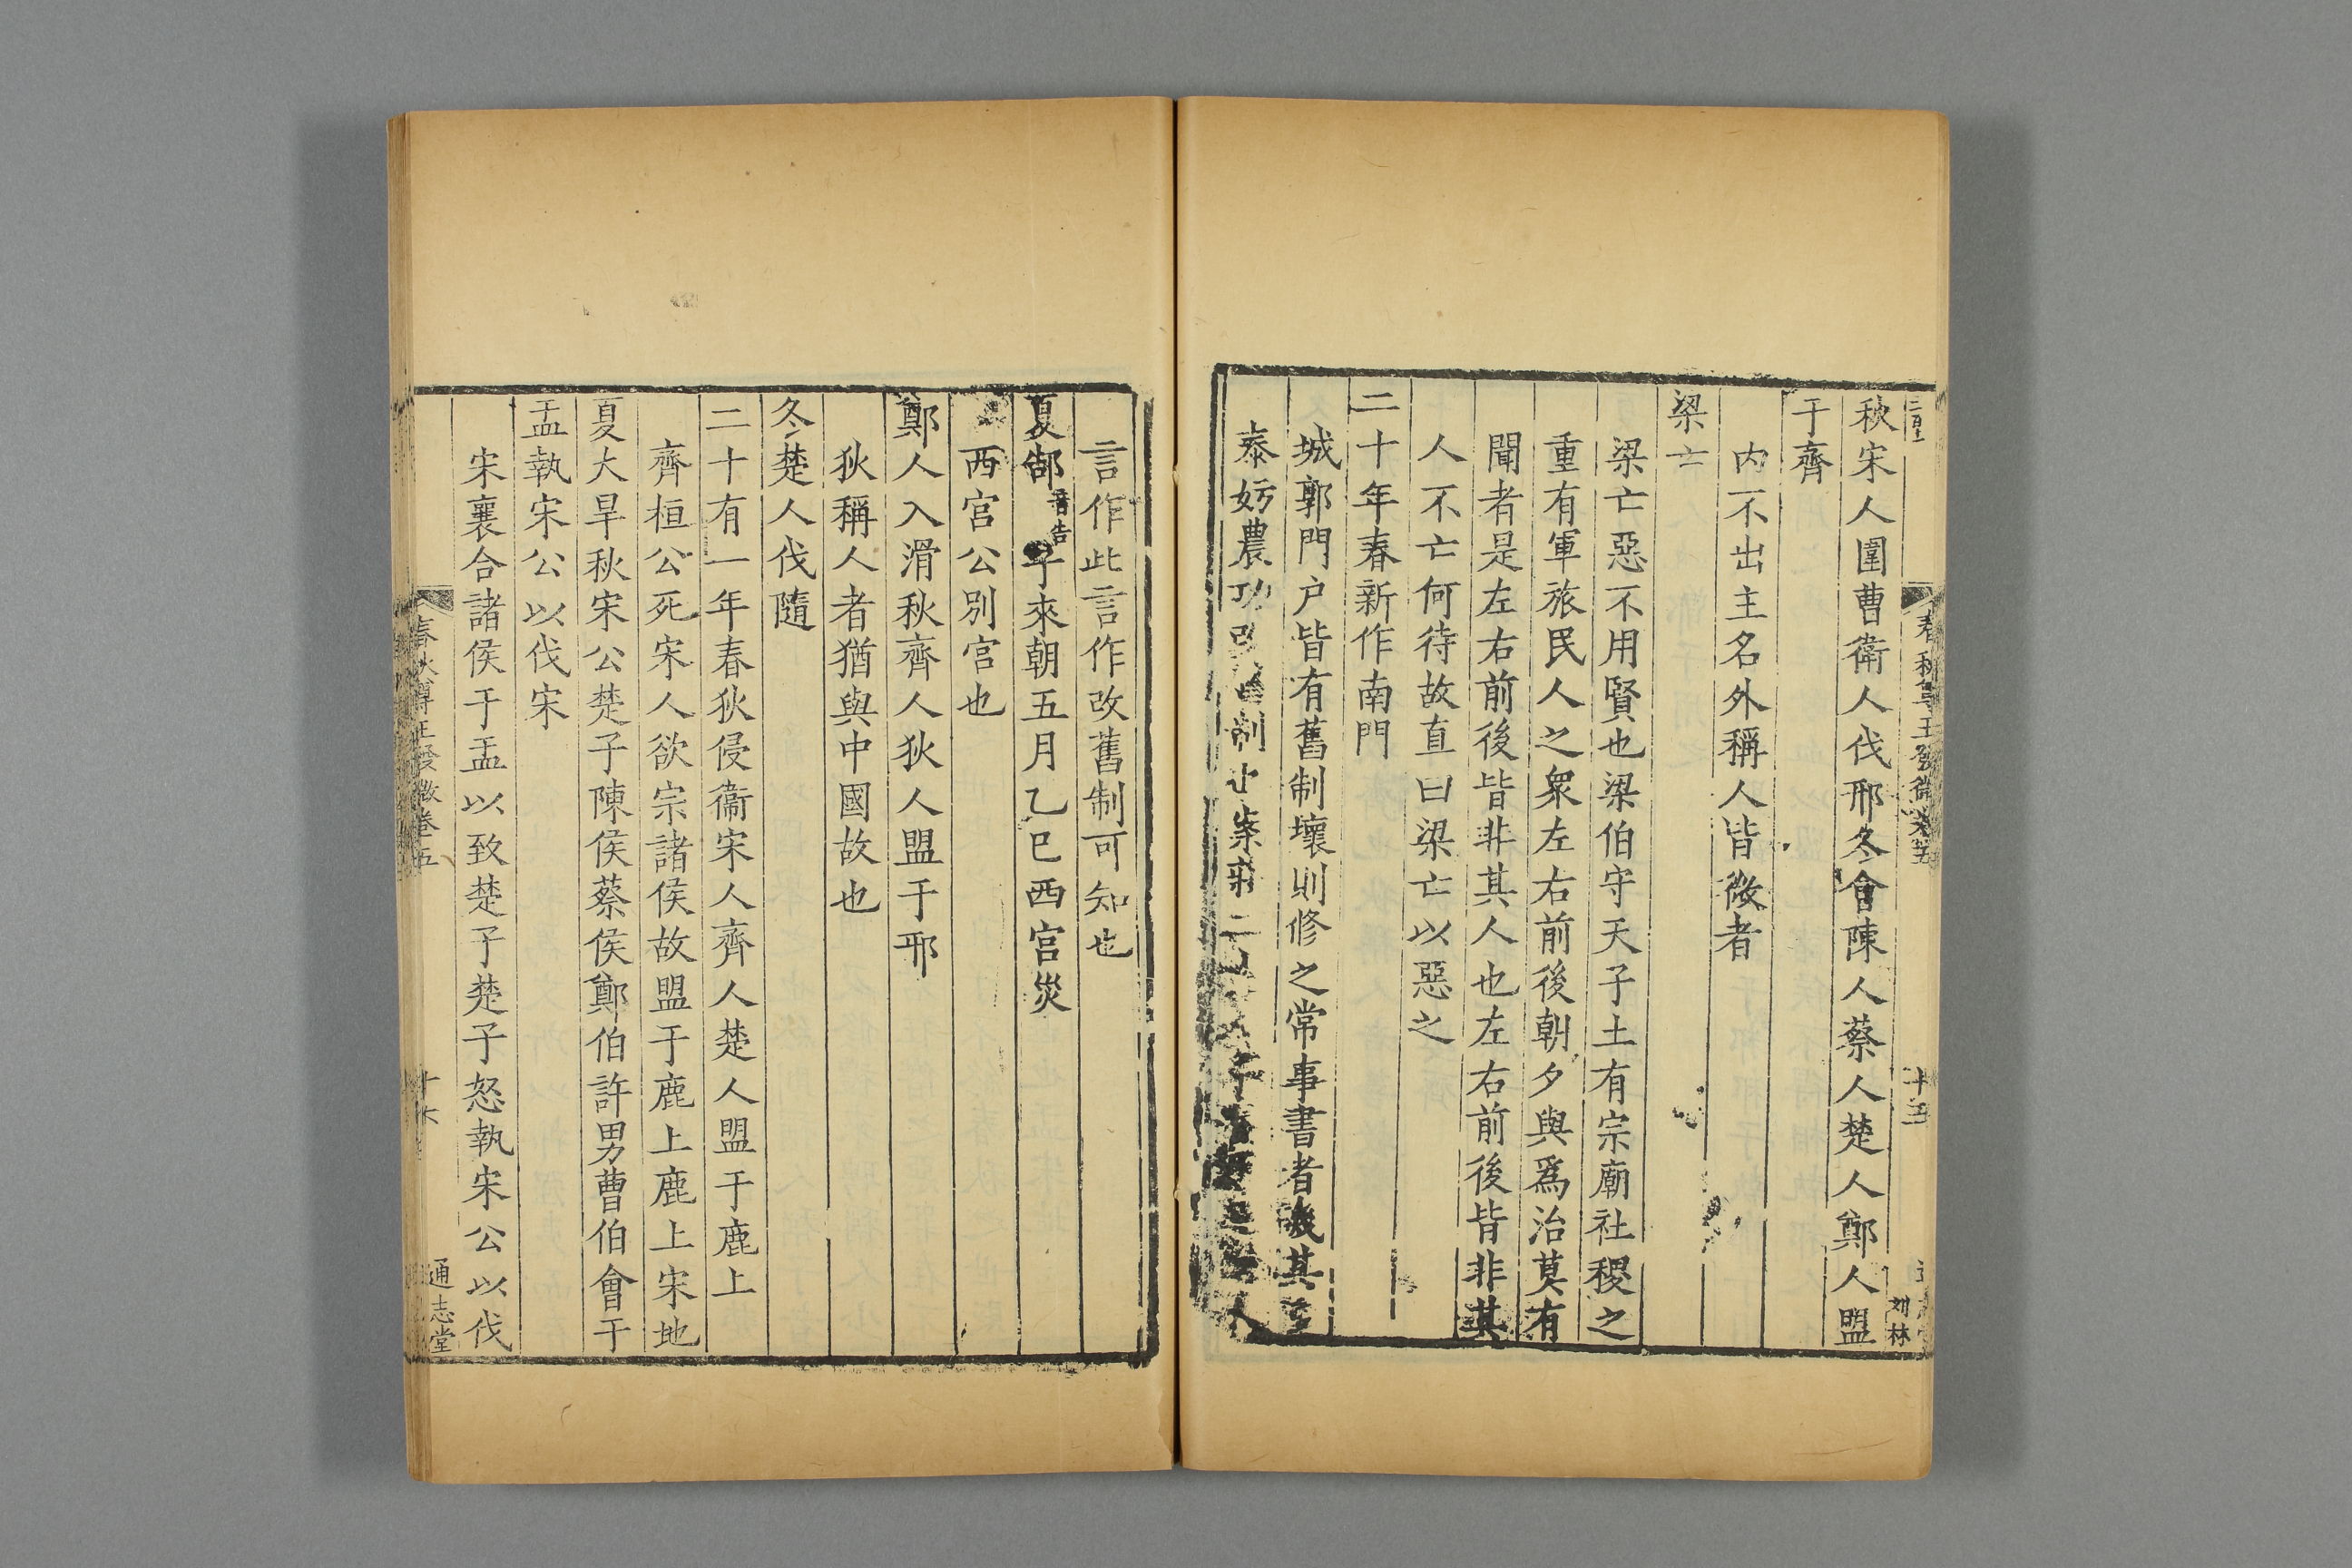 秋宋人圍曹衛人伐邢冬會陳人蔡人楚人鄭人盟
于齊
内不出主名外稱人皆微者
梁亡
梁亡惡不用賢也梁伯守天子土有宗廟社稷之
重有軍旅民人之衆左右前後朝夕與爲治莫有
聞者是左右前後皆非其人也左右前後皆非其
人不亡何待故直曰梁亡以惡之
二十年春新作南門
城郭門户皆有舊制壞則修之常事書者譏其
泰妨農功改舊制也案莊二
言作此言作改舊制可知也
夏郜音告子來朝五月乙巳西宫災
西宫公别宫也
鄭人入滑秋齊人狄人盟于邢
狄稱人者猶與中國故也
冬楚人伐隨
二十有一年春狄侵衞宋人齊人楚人盟于鹿上
齊桓公死宋人欲宗諸侯故盟于鹿上鹿上宋地
夏大旱秋宋公楚子陳侯蔡侯鄭伯許男曹伯會于
盂執宋公以伐宋
宋襄合諸侯于盂以致楚子楚子怒執宋公以伐
春秋尊王發微卷五
十六
通志堂